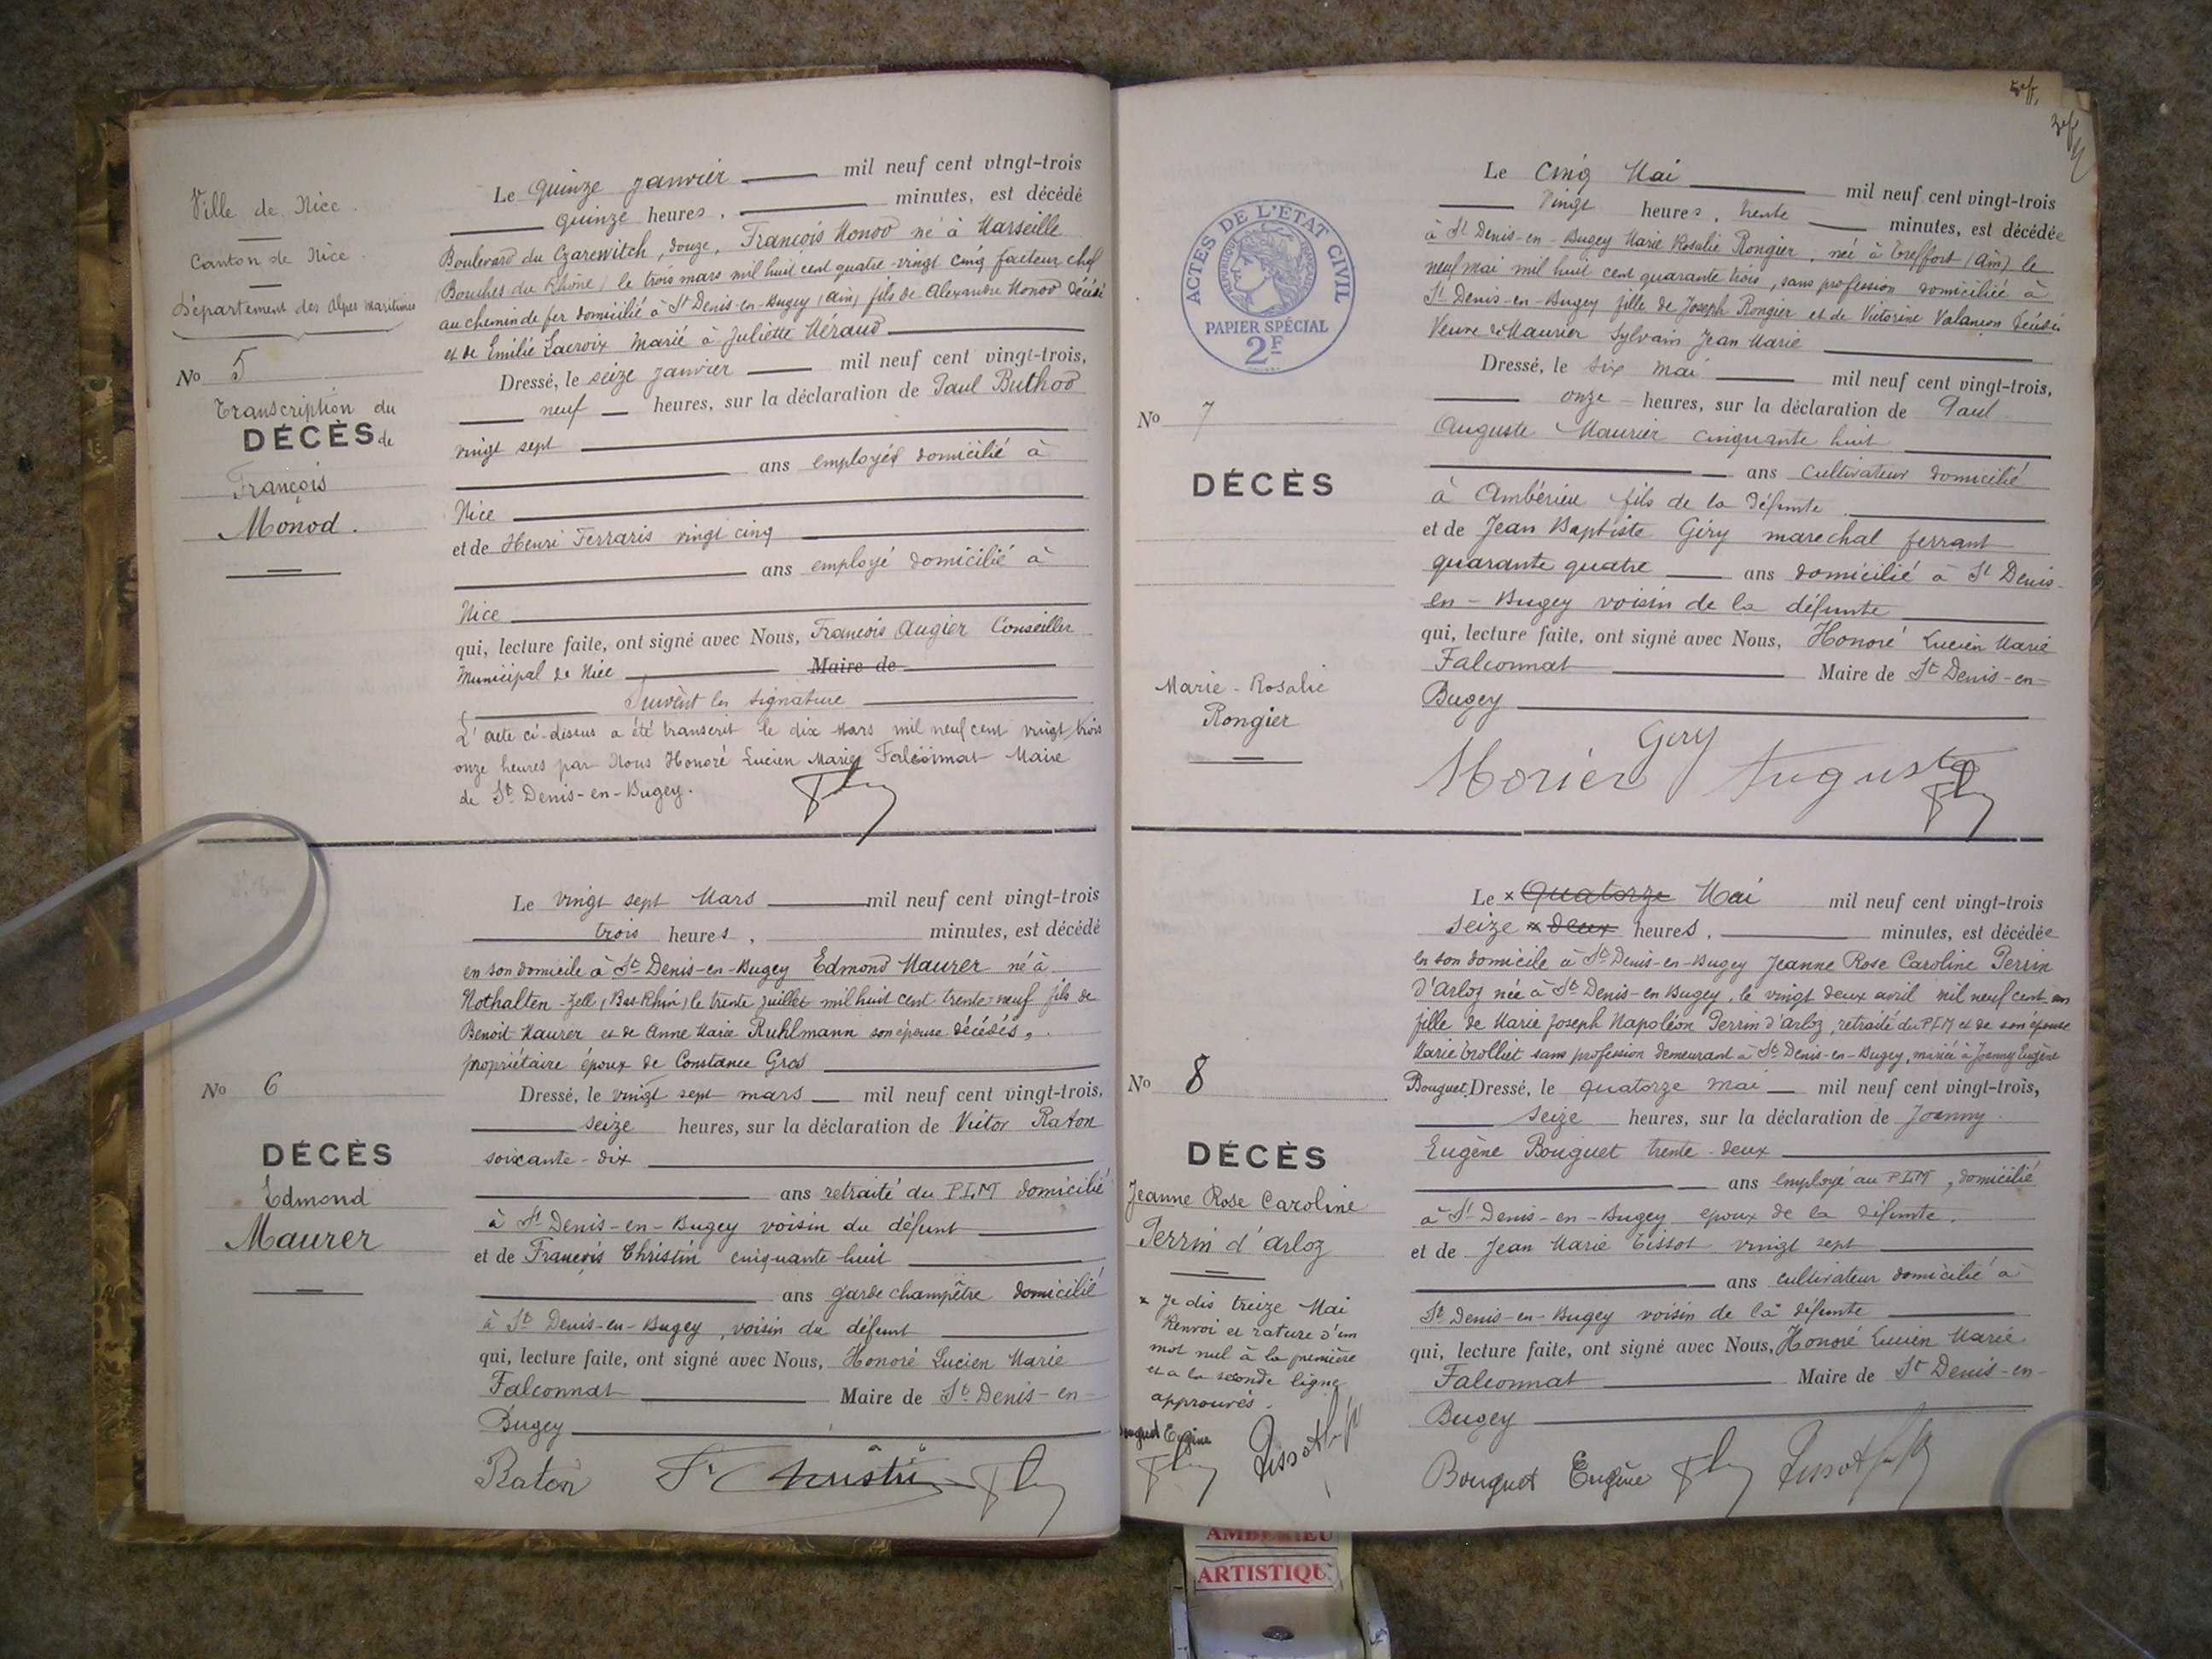 Ville de Nice.
Canton de Nice.
Département des Alpes Maritimes
No 5
Transcription du
DÉCÈS de
François
Monod.
Le quinze janvier mil neuf cent vingt-trois
quinze heures, minutes, est décédé
Boulevard du Czarewitch, douze, François Monod né à Marseille
(Bouches du Rhône) le trois mars mil huit cent quatre-vingt cinq facteur chef
au chemin de fer domicilié à St Denis-en-Bugey (Ain) fils de Alexandre Monod décédé
et de Emilie Lacroix marié à Juliette Méraud
Dressé, le seize janvier mil neuf cent vingt-trois,
neuf heures, sur la déclaration de Paul Buthod
vingt sept
ans employés domicilié à
Nice
et de Henri Ferraris vingt cinq
ans employé domicilié à
Nice
qui, lecture faite, ont signé avec Nous, François Augier Conseiller
Municipal de Nice Maire de
Suivent les signature
L'acte ci-dessus a été transcrit le dix Mars mil neuf cent vingt trois
onze heures par Nous Honoré Lucien Marie Falconnat Maire
de St Denis-en-Bugey.
No 6
DÉCÈS
Edmond
Maurer
Le vingt sept Mars mil neuf cent vingt-trois
trois heures, minutes, est décédé
en son domicile à St Denis-en-Bugey Edmond Maurer né à
Nothalten-Zell (Bas-Rhin) le trente juillet mil huit cent trente-neuf fils de
Benoit Maurer et de Anne Marie Ruhlmann son épouse décédés,
propriétaire époux de Constance Gros
Dressé, le vingt sept mars mil neuf cent vingt-trois,
seize heures, sur la déclaration de Victor Raton
soixante-dix
ans retraité du PLM domicilié
à St Denis-en-Bugey voisin du défunt
et de François Christin cinquante huit
ans garde champêtre domicilié
à St Denis-en-Bugey, voisin du défunt
qui, lecture faite, ont signé avec Nous, Honoré Lucien Marie
Falconnat Maire de St Denis-en-
Bugey
Raton Fs Christin
ACTES DE L'ETAT CIVIL
PAPIER SPÉCIAL
2F
No 7
DÉCÈS
Marie-Rosalie
Rongier
Le Cinq Mai mil neuf cent vingt-trois
Vingt heures, trente minutes, est décédée
à St Denis-en-Bugey Marie Rosalie Rongier, née à Treffort (Ain) le
neuf mai mil huit cent quarante trois, sans profession domiciliée à
St Denis-en-Bugey fille de Joseph Rongier et de Victorine Valancon décédés
Veuve de Maurier Sylvain Jean Marie
Dressé, le six mai mil neuf cent vingt-trois,
onze heures, sur la déclaration de Paul
Auguste Maurier cinquante huit
ans cultivateur domicilié
à Ambérieu fils de la défunte
et de Jean Baptiste Géry marechal ferrant
quarante quatre ans domicilié à St Denis-
en-Bugey voisin de la défunte
qui, lecture faite, ont signé avec Nous, Honoré Lucien Marie
Falconnat Maire de St Denis-en-
Bugey
Gery
Morier Auguste
No 8
DÉCÈS
Jeanne Rose Caroline
Perrin d'arloz
x Je dis treize Mai
Renvoi et rature d'un
mot nul à la première
et a la seconde ligne
approuvés.
Bouguet Eugène
Le x Quatorze Mai mil neuf cent vingt-trois
seize x deux heures, minutes, est décédée
en son domicile à St Denis-en-Bugey Jeanne Rose Caroline Perrin
d'Arloz née à St Denis-en Bugey, le vingt deux avril mil neuf cent un
fille de Marie Joseph Napoléon Perrin d'arloz, retraité du PLM et de son épouse
Marie Trolliet sans profession demeurant à St Denis-en-Bugey, mariée à Joanny Eugène
Bouguet. Dressé, le quatorze mai mil neuf cent vingt-trois,
seize heures, sur la déclaration de Joanny
Eugène Bouguet trente-deux
ans employé au PLM, domicilié
à St Denis-en-Bugey epoux de la défunte.
et de Jean Marie Tissot vingt sept
ans cultivateur domicilié à
St Denis-en-Bugey voisin de la défunte
qui, lecture faite, ont signé avec Nous, Honoré Lucien Marie
Falconnat Maire de St Denis-en-
Bugey
Bouguet Eugène
AMBÉRIEU
ARTISTIQU